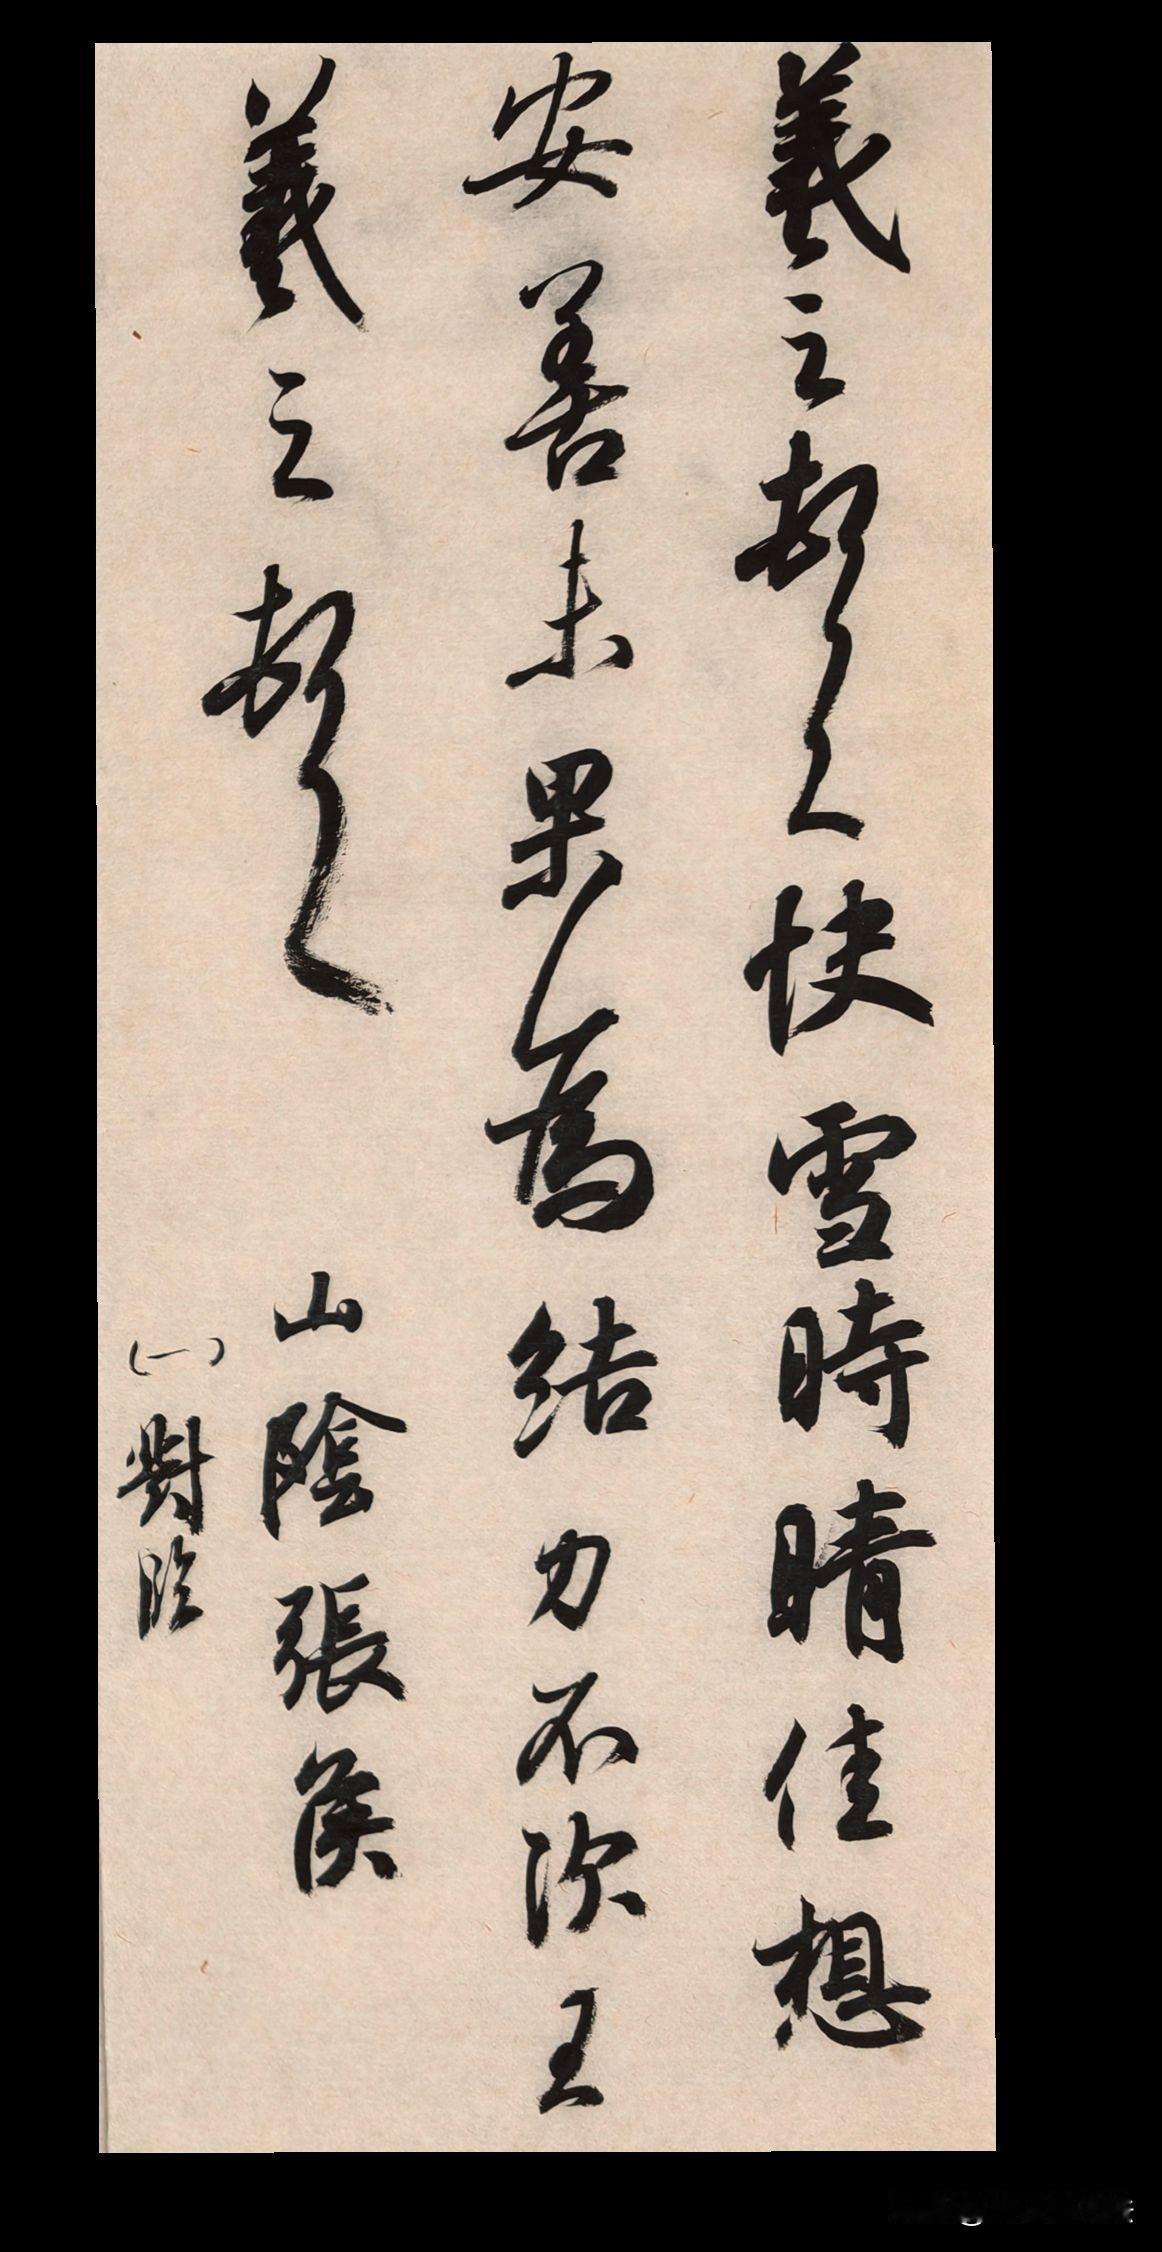 羲之頓首快雪時晴佳想
安善未果為結力不次王
羲之頓首
山陰張侯
(一)對臨